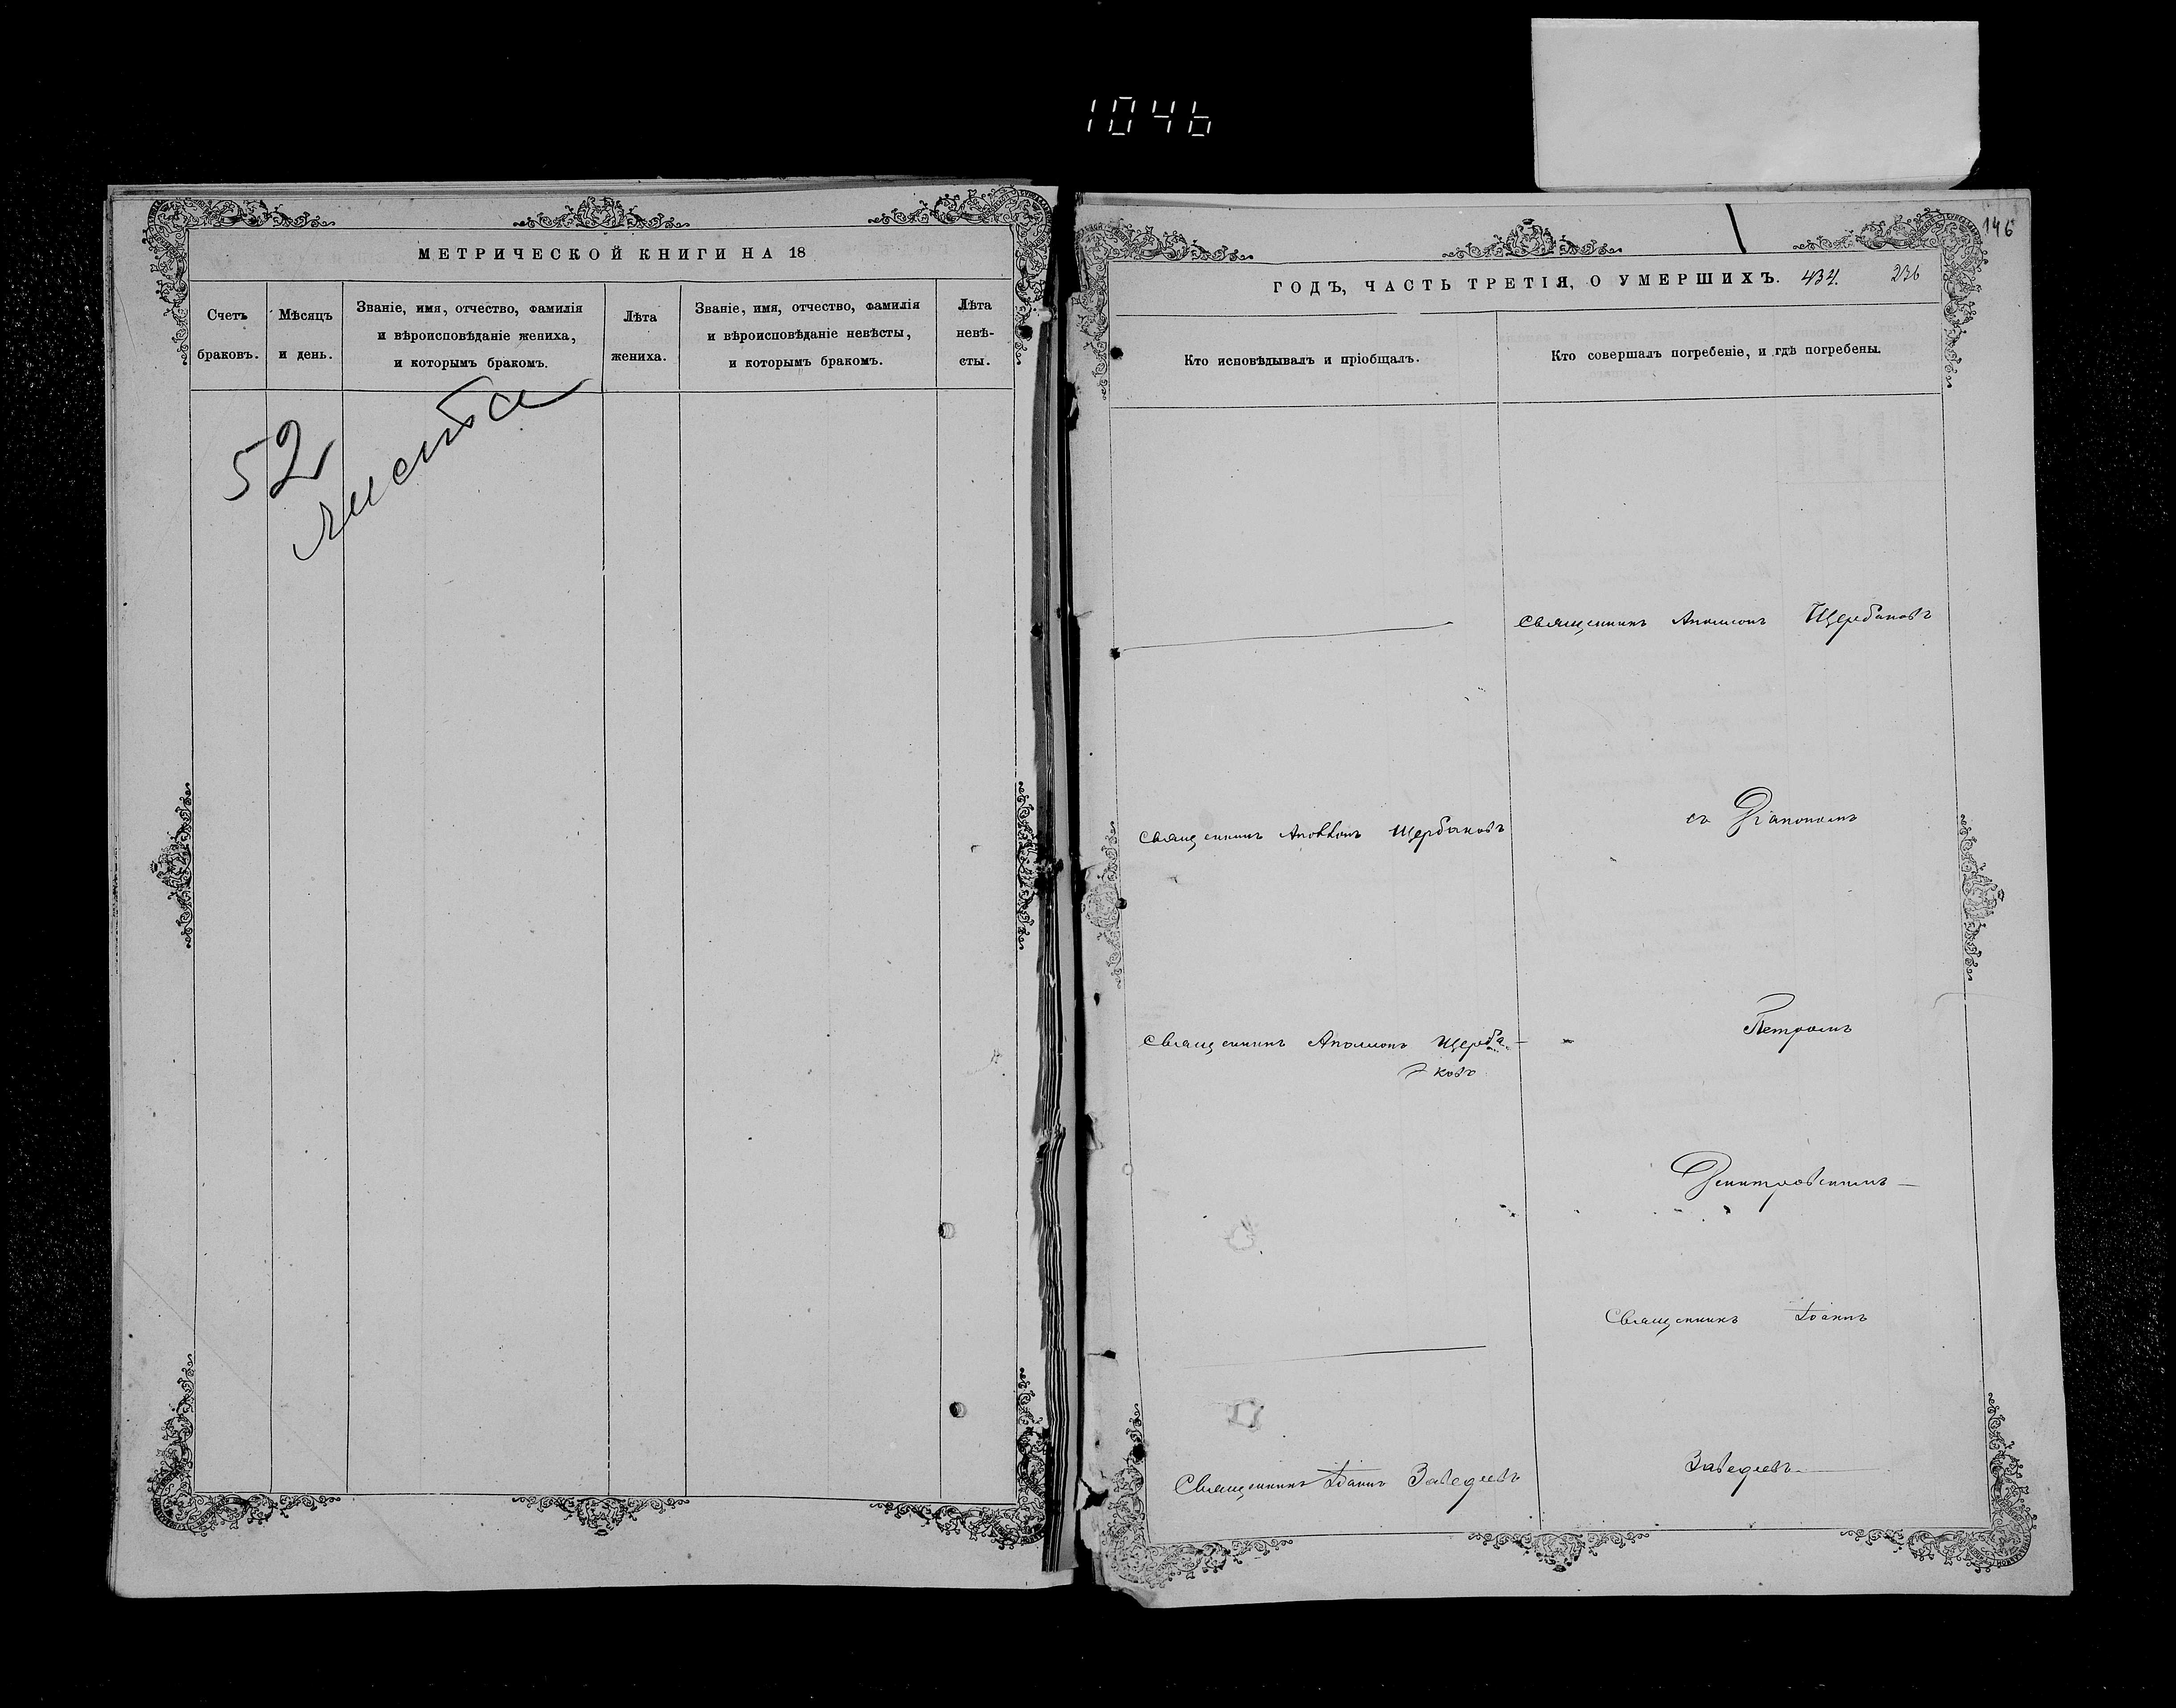 1046
МЕТРИЧЕСКОЙ КНИГИ НА 18
Счетъ
браковъ.
Мѣсяцъ
и день.
Званіе, имя, отчество, фамилія
и вѣроисповѣданіе жениха,
и которымъ бракомъ.
Лѣта
жениха.
Званіе, имя, отчество, фамилія
и вѣроисповѣданіе невѣсты,
и которымъ бракомъ.
Лѣта
невѣ-
сты.
52
листа
146
ГОДЪ, ЧАСТЬ ТРЕТІЯ, О УМЕРШИХЪ. 434. 236
Кто исповѣдывалъ и пріобщалъ.
Кто совершалъ погребеніе, и гдѣ погребены.
Священникъ Аполлонъ Щербаковъ
Священникъ Аполлонъ Щербаковъ
съ Діакономъ
Священникъ Аполлонъ Щерба-
ковъ
Петромъ
Димитровскимъ
Священникъ Іоаннъ
Священникъ Іоаннъ Заведеевъ
Заведеевъ